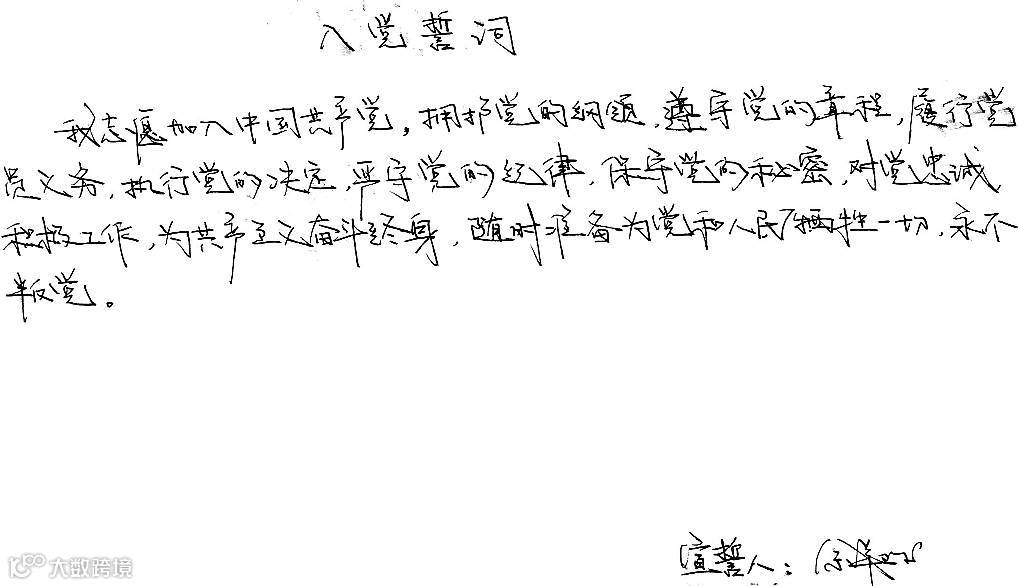 入党誓词
我志愿加入中国共产党,拥护党的纲领,遵守党的章程,履行党
员义务,执行党的决定,严守党的纪律,保守党的秘密,对党忠诚
积极工作,为共产主义奋斗终身,随时准备为党和人民牺牲一切,永不
叛党。
宣誓人:
大数跨境